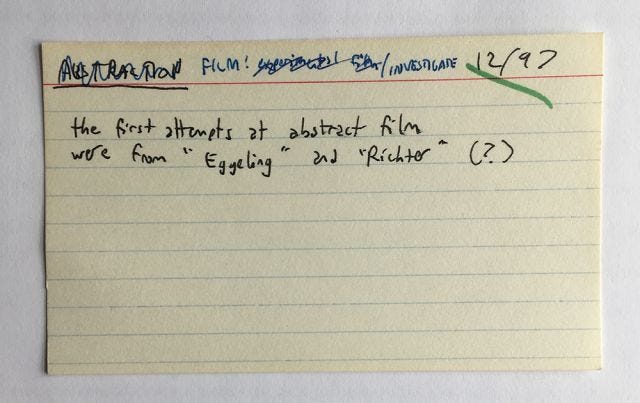 ABSTRACTION FILM: experimental film/INVESTIGATE 12/97
the first attempts at abstract film
were from "Eggeling" and "Richter" (?)